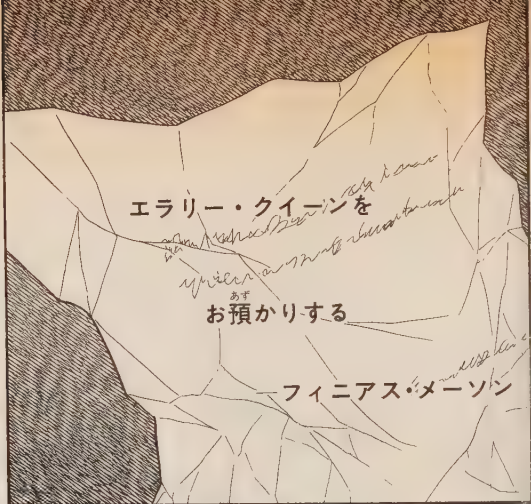 エラリー・クイーンを
お預かりする
フィニアス・メーソン